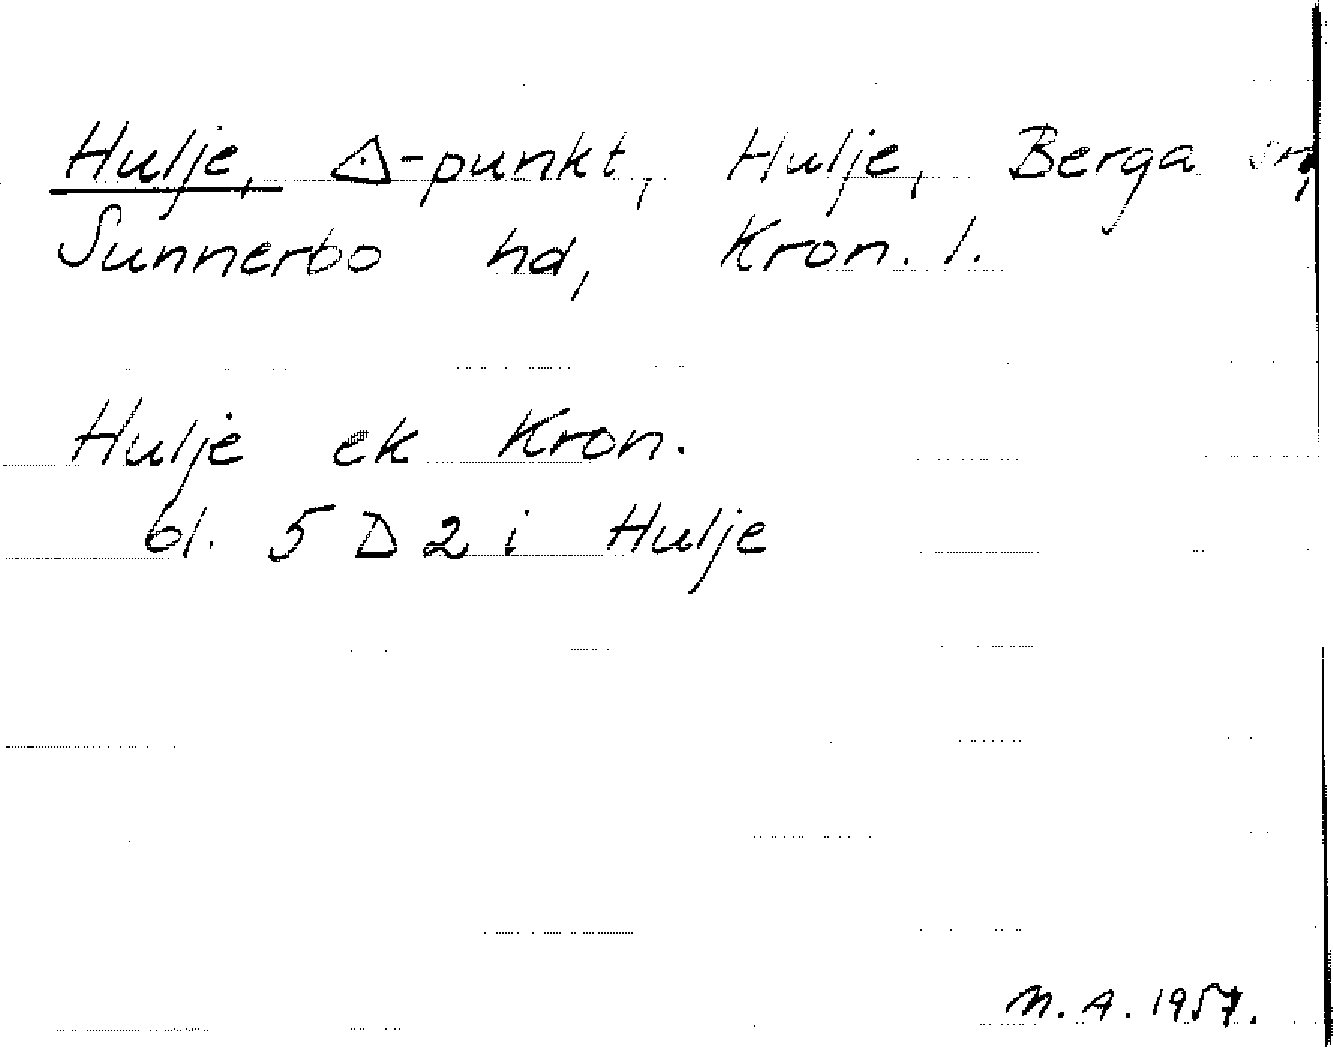 Hulje, △-punkt, Hulje, Berga sn,
Sunnerbo hd, Kron. l.
Hulje ek Kron.
bl. 5 D 2 i Hulje
M. A. 1957.